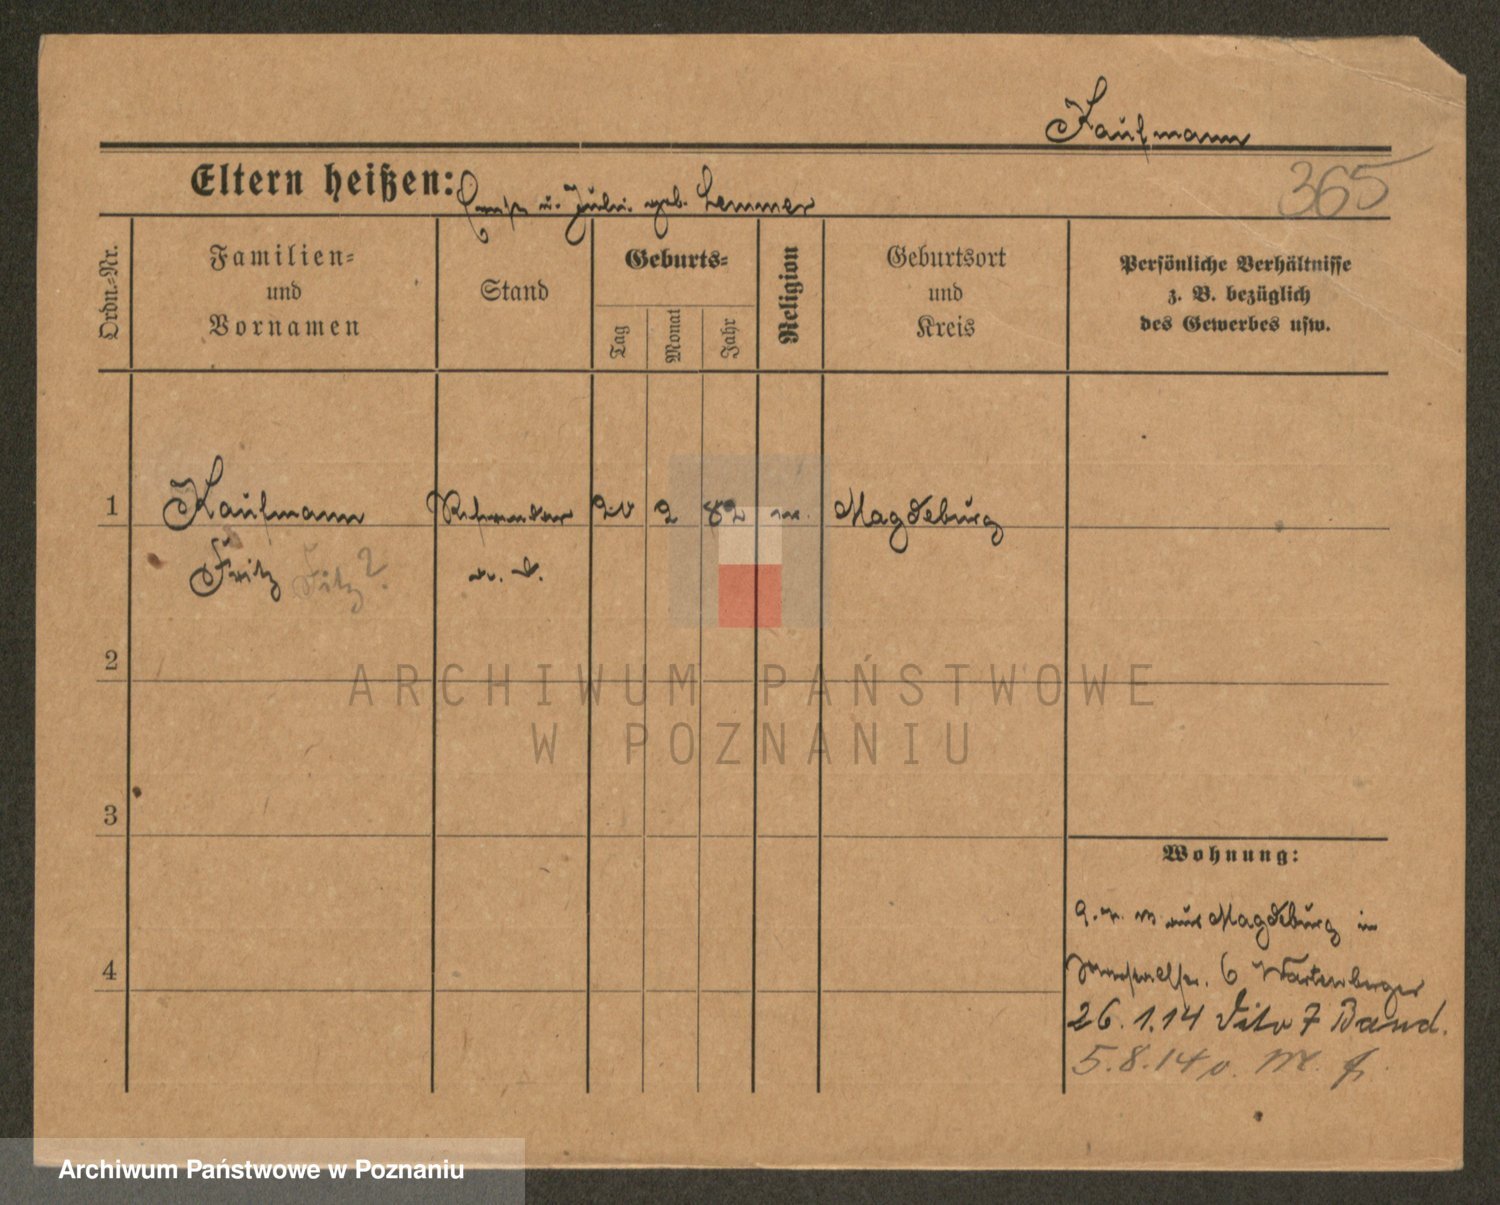 Kaufmann
365
Eltern heißen: u. geb. Lemmer
Ordn.-Nr.
Familien-
und
Vornamen
Stand
Geburts-
Tag
Monat
Jahr
Religion
Geburtsort
und
Kreis
Persönliche Verhältnisse
z. B. bezüglich
des Gewerbes usw.
1 Kaufmann 20 2 82 Magdeburg
Fritz Fitz?
2
ARCHIWUM PAŃSTWOWE
W POZNANIU
3
Wohnung:
aus Magdeburg in
4
6 Wartenberger
26.1.14 Dito 7 Band.
5.8.14 v. M.
Archiwum Państwowe w Poznaniu